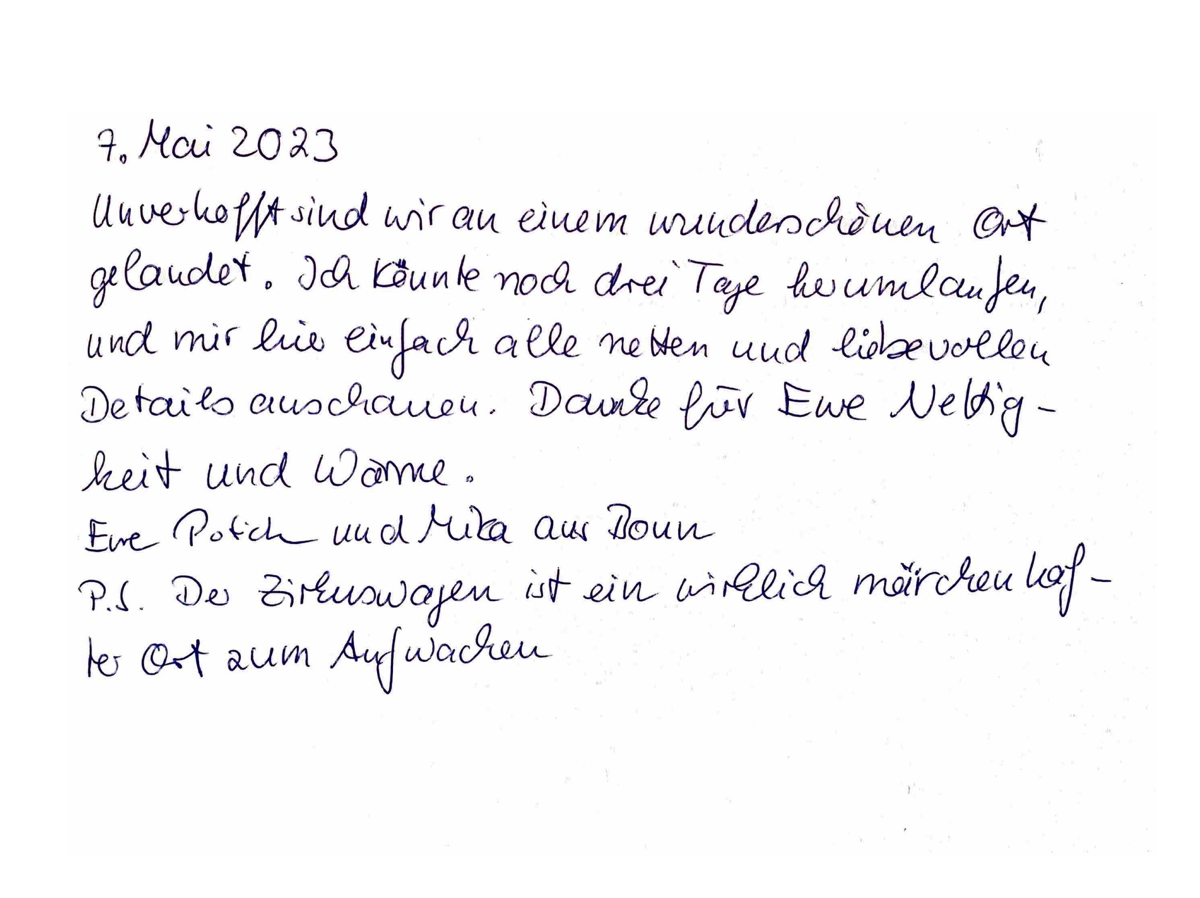 7. Mai 2023
Unverhofft sind wir an einem wunderschönen Ort
gelandet. Ich könnte noch drei Tage herumlaufen,
und mir hie einfach alle netten und liebevollen
Details anschauen. Danke für Eure Nettig-
keit und Wärme.
Eure und Mika aus Bonn
P.S. Der Zirkuswagen ist ein wirklich märchenhaf-
ter Ort zum Aufwachen